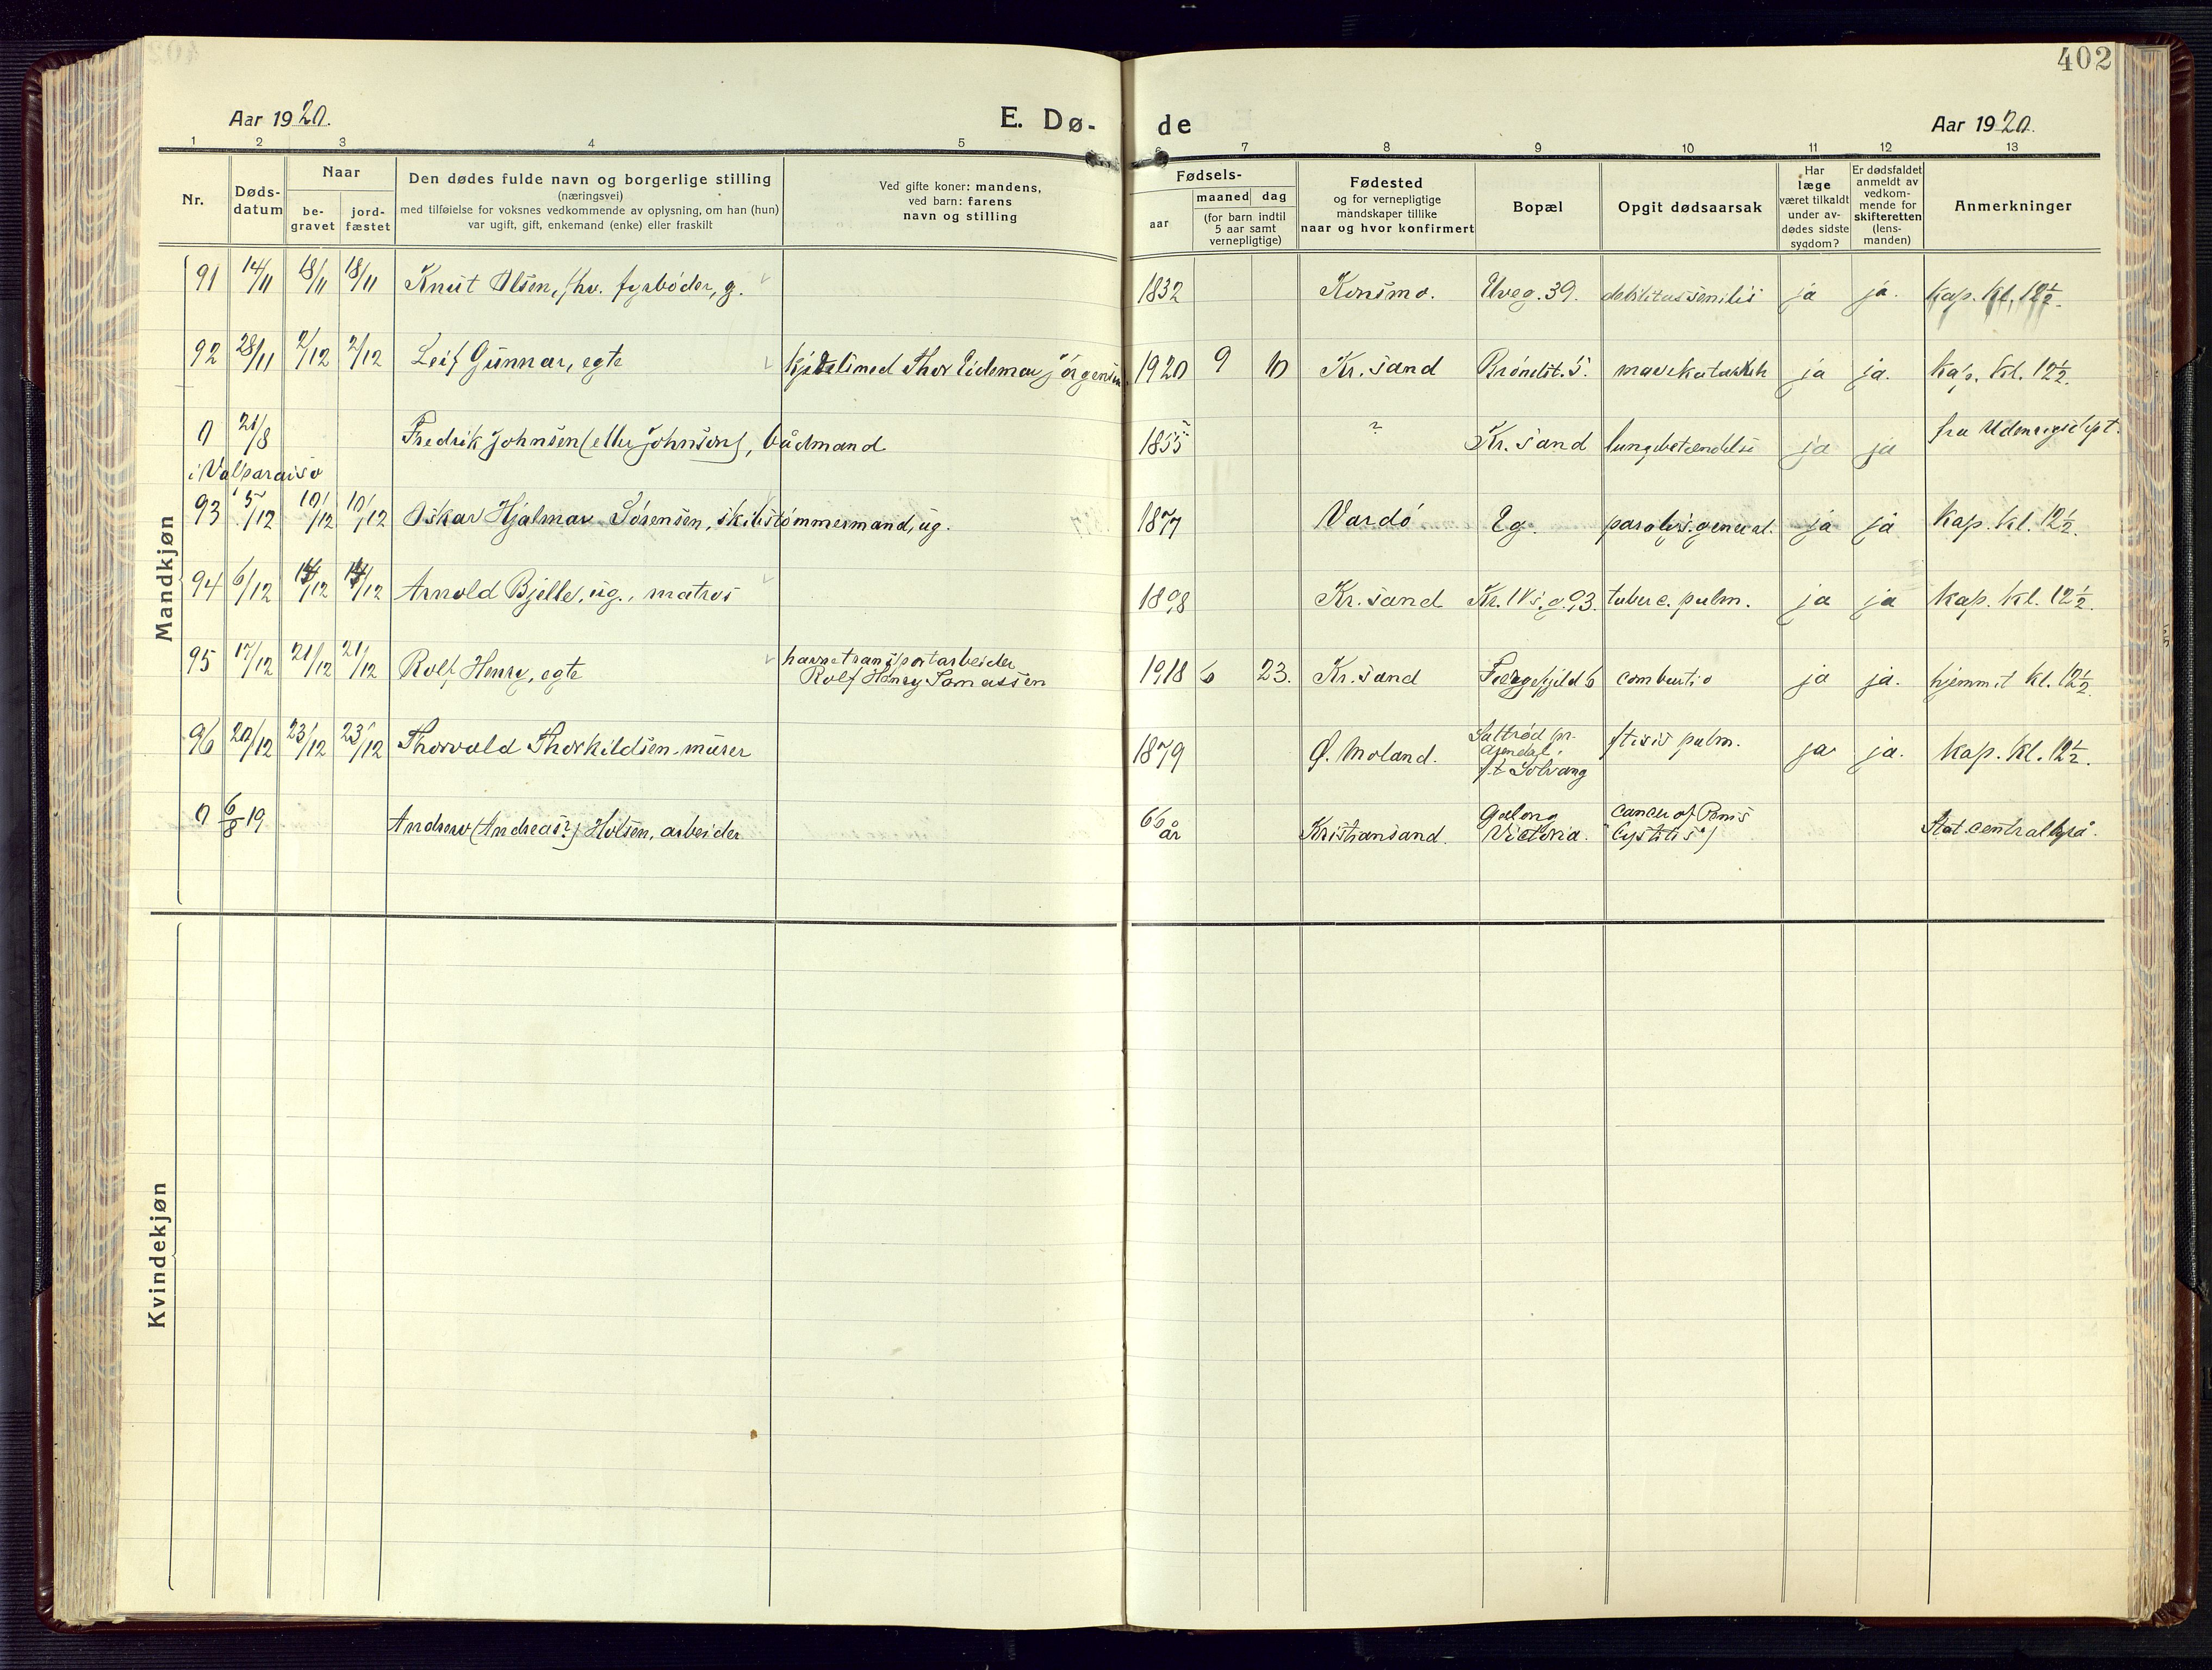 402
Aar 1920.
E. Dø-
de
Aar 1920.
1 2 3 4 5 6 7 8 9 10 11 12 13
Nr.
Døds-
datum
Naar
be-
gravet
jord-
fæstet
Den dødes fulde navn og borgerlige stilling
(næringsvei)
med tilføielse for voksnes vedkommende av oplysning, om han (hun)
var ugift, gift, enkemand (enke) eller fraskilt
Ved gifte koner: mandens,
ved barn: farens
navn og stilling
Fødsels-
aar
maaned dag
(for barn indtil
5 aar samt
vernepligtige)
Fødested
og for vernepligtige
mandskaper tillike
naar og hvor konfirmert
Bopæl
Opgit dødsaarsak
Har
læge
været tilkaldt
under av-
dødes sidste
sygdom?
Er dødsfaldet
anmeldt av
vedkom-
mende for
skifteretten
(lens-
manden)
Anmerkninger
Mandkjøn
91 14/11 18/11 18/11 Knut Olsen, fhv. fyrbøder, g. 1832 Konsmo. Elveg. 39. debilitas senilis ja ja. kap. kl. 12½.
92 28/11 2/12 2/12 Leif Gunnar, egte Thor Eidemar Jörgensen. 1920 9 10 Kr.sand mavekatarrh ja ja. Kap. kl. 12½.
0 21/8 Fredrik Johnsen (eller Johnson), bådmand 1855 ? Kr. sand lungebetændelse ja ja fra Udenrigsdept.
i Valparaiso
93 5/12 10/12 10/12 Oskar Hjalmar Sörensen, skibstömmermand, ug. 1877 Vardö Eg. paralys. general. ja ja Kap. kl. 12½.
94 6/12 Arnold Bjelle, ug., matros 1898 Kr.sand tuberc. pulm. ja ja Kap. kl. 12½.
95 17/12 21/12 21/12 Rolf Henry, egte havnetransportarbeider
Rolf Henry Tomassen 1918 6 23. Kr. sand combustio ja ja. hjemmet kl. 12½.
96 20/12 23/12 23/12 Thorvald Thorkildsen, murer 1879 Ø. Moland. Saltrød pr.
Arendal.
f.t. Solvang ftisis pulm. ja ja. Kap. kl. 12½.
0 6/8 19 Andrew (Andreas?) Holsen, arbeider 66 år Kristiansand. Geelong
Victoria. Cancer of Penis
(Cystitis) Stat. centralbyrå.
Kvindekjøn